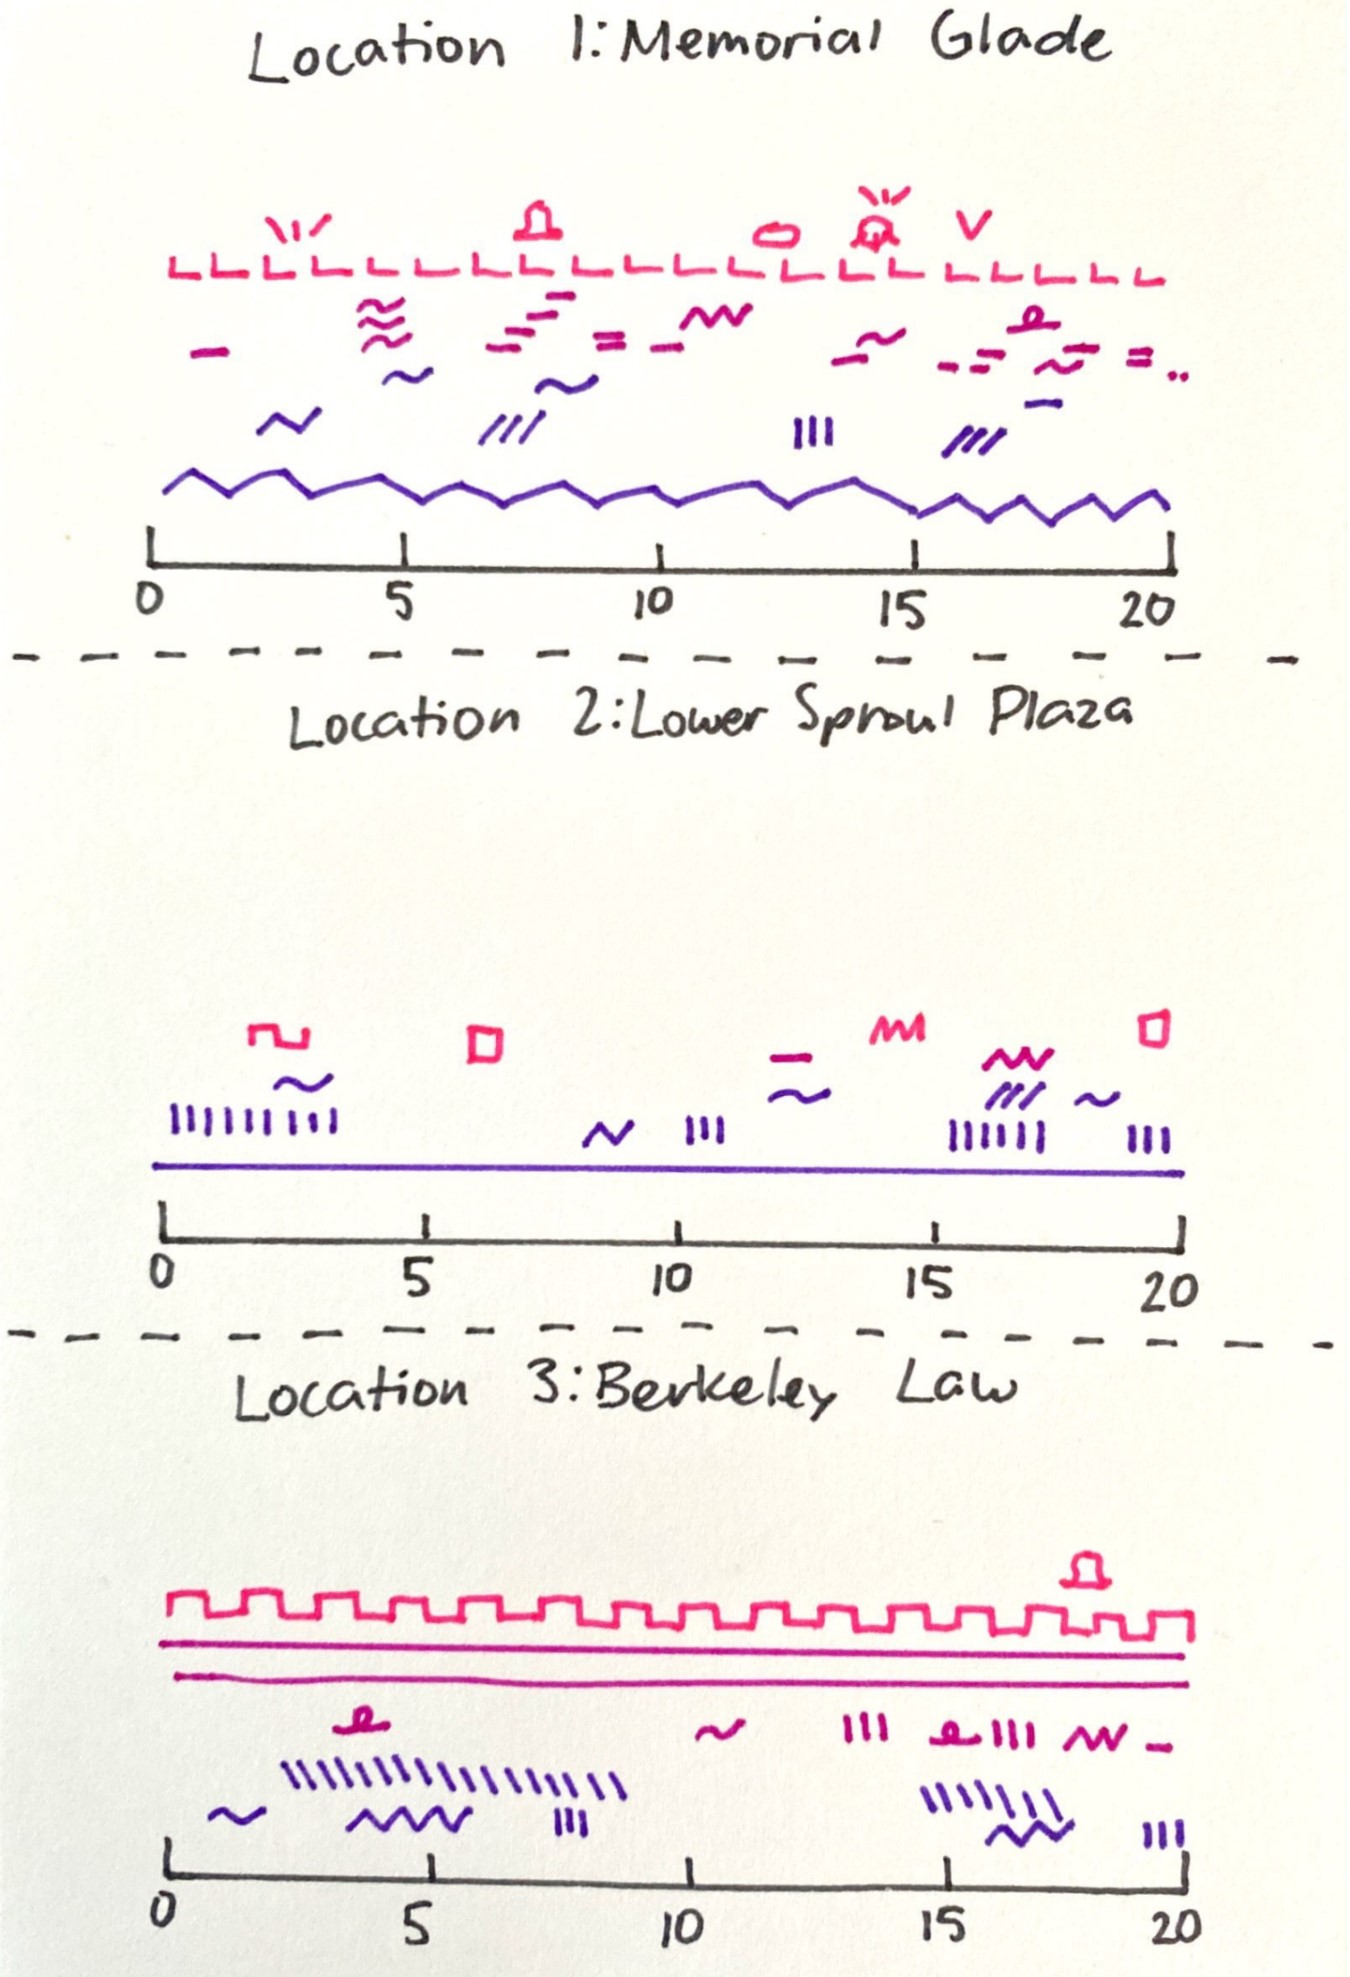 Location 1: Memorial Glade
0 5 10 15 20
Location 2: Lower Sproul Plaza
0 5 10 15 20
Location 3: Berkeley Law
0 5 10 15 20